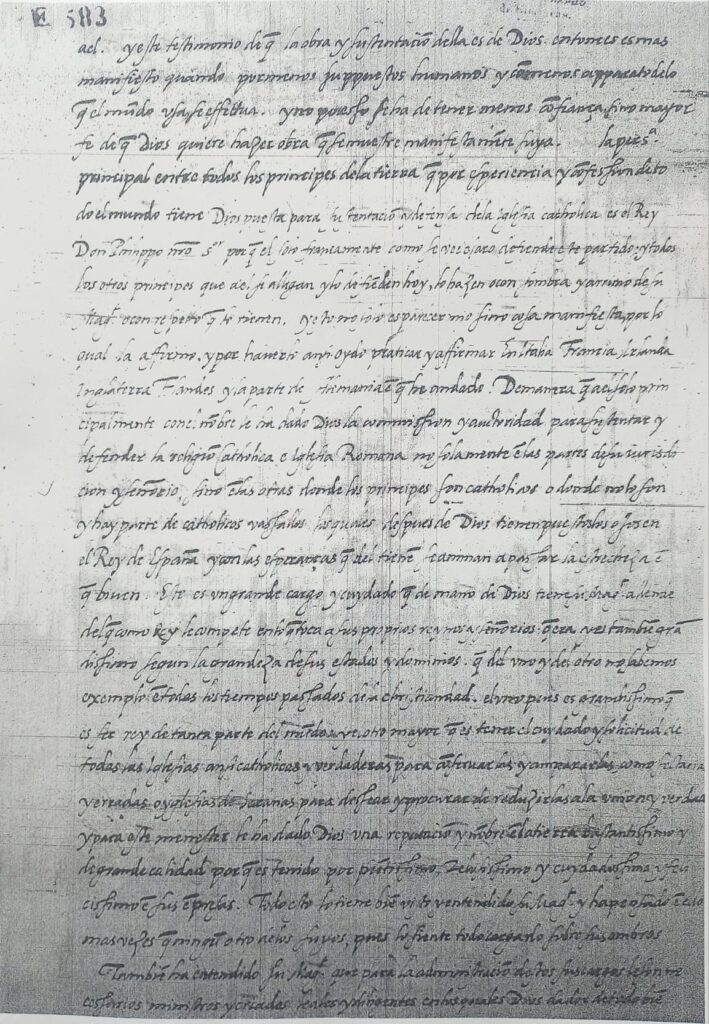 E 583
ael. y este testimonio de q̃ la obra y sustentaciõ della es de Dios. entonces es mas
manifiesto quando por menos suppuestos humanos y cõ menos apparato de lo
q̃ el mũdo usa, se effectua. y no por esso se ha de tener menos cõfiança, sino mayor
fe de q̃ Dios quiere hazer obra q̃ se muestre manifestamẽte suya. la persª.
principal entre todos los principes de la tierra q̃ por esperiencia y cõfession de to
do el mundo tiene Dios puesta para sustentaciõ y defensa de la iglesia catholica es el Rey
Don Philippo nr̃o sor porq̃ el solo francamente como se vee claro defiende este partido, y todos
los otros principes que a el se allegan y lo defiẽden hoy, lo hazen o con sombra y arrimo de su
Magd. o con respetto q̃ le tienen. y esto no solo es parecer mio sino cosa manifiesta, por lo
qual la affirmo, y por haverlo ansi oydo praticar y affirmar en Italia Francia, Irlanda
Inglaterra Flandes y la parte de Alemania ẽ q̃ he andado. De manera q̃ a el solo prin
cipalmente cõ el nõbre le ha dado Dios la commission y auctoridad para sustentar y
defender la religiõ Catholica e Iglesia Romana no solamente ẽ las partes de su iurisdi
cion y señorio, sino ẽ las otras donde los principes son catholicos o donde no lo son
y hay parte de catholicos vassallos los quales despues de Dios tienen puestos los ojos en
el Rey de España y con las esperanças q̃ del tienẽ se animan a passar la estrecheza ẽ
q̃ biuen. Este es un grande cargo y cuydado q̃ de mano de Dios tiene su Magd. allende
del q̃ como Rey le compete en lo q̃ toca a sus proprios reynos y señorios. q̃ era y es tambiẽ grã
dissimo segun la grandeza de sus estados y dominios. q̃ del uno y del otro no habemos
exemplo ẽ todos los tiempos passados de la christiandad. el uno pues es grandissimo q̃
es ser rey de tanta parte del mũdo, y el otro mayor q̃ es tener el cuydado y solicitud de
todas las Iglesias ansi catholicas y verdaderas para cõseruarlas y ampararlas, como
y erradas o yglesias de Satanas para dessear y procurar de reduzirlas a la union y verdad
y para este menester le ha dado Dios una reputaciõ y nõbre ẽ la tierra bastantissimo y
de grande calidad porq̃ es tenido por pientissimo, zelosissimo y cuydadosissimo y feli
cissimo ẽ sus ẽpresas. Todo esto lo tiene biẽ visto y entendido su Magd. y ha pensado ẽ ello
mas vezes q̃ ningũ otro de los suyos, pues lo siente todo cargarlo sobre sus ombros
Tambiẽ ha entendido su Magd. que para la administraciõ destos sus cargos le son ne
cessarios ministros y criados leales y diligentes en los quales Dios dador de todo biẽ